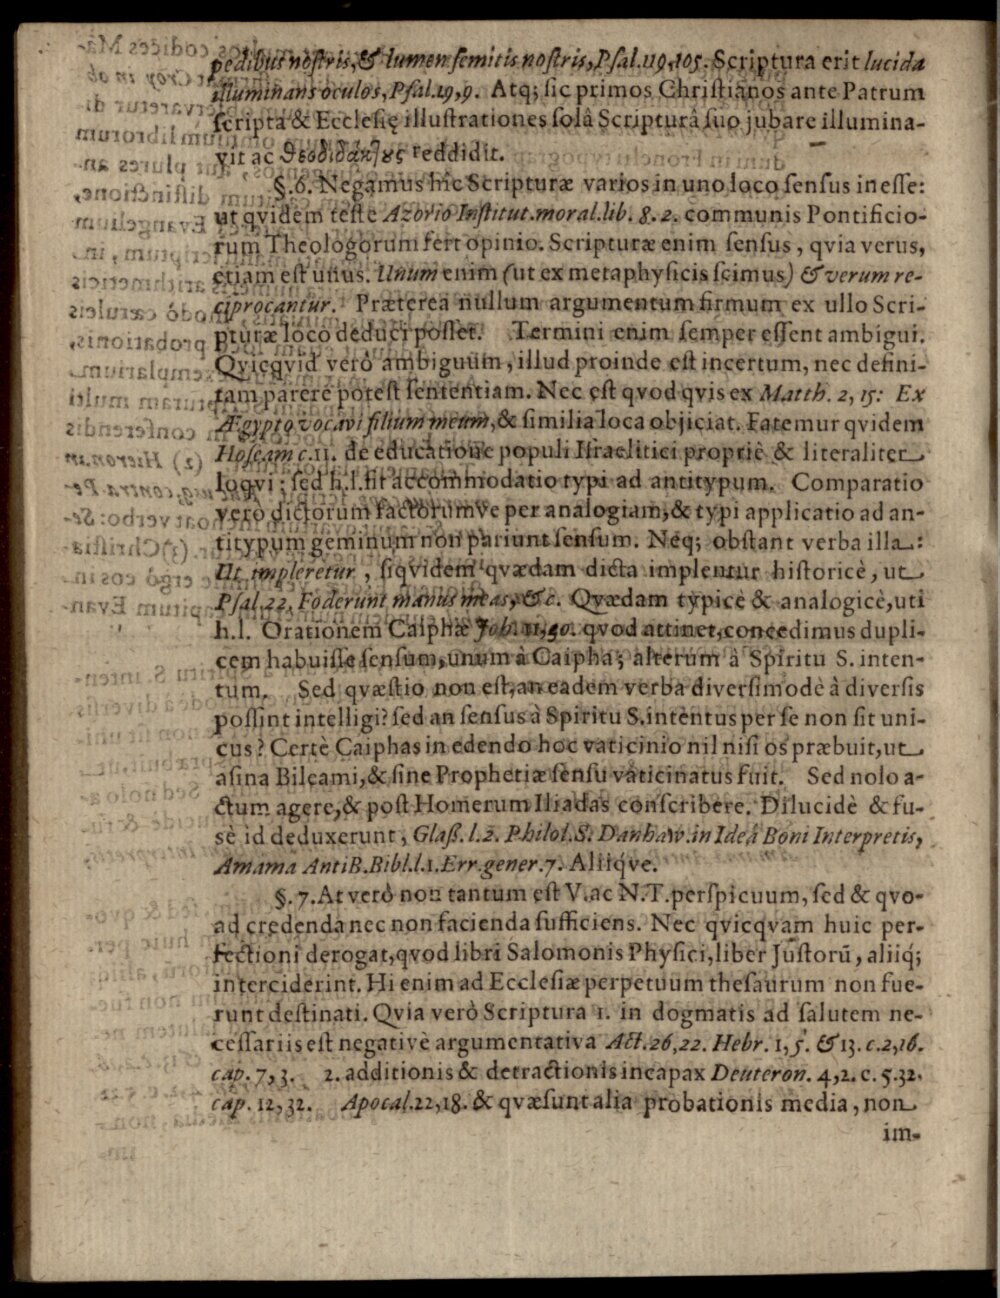 pedibus nostris, & lumen semitis nostris, Psal. 119, 105. Scriptura erit lucida
illuminans oculos, Psal. 19, 9. Atq; sic primos Christianos ante Patrum
scripta & Ecclesię illustrationes solâ Scripturâ suo jubare illumina-
vit ac Θεοδιδάκτȣς reddidit.
§. 6. Negamus hîc Scripturæ varios in uno loco sensus inesse:
ut qvidem teste Azorio Institut. moral. lib. 8. 2. communis Pontificio-
rum Theologorum fert opinio. Scripturæ enim sensus, qvia verus,
etiam est unus. Unum enim (ut ex metaphysicis scimus) & verum re-
ciprocantur. Præterea nullum argumentum firmum ex ullo Scri-
pturæ loco deduci posset. Termini enim semper essent ambigui.
Qvicqvid verò ambiguum, illud proinde est incertum, nec defini-
tam parere potest sententiam. Nec est qvod qvis ex Matth. 2, 15: Ex
Ægypto vocavi filium meum, & similia loca objiciat. Fatemur qvidem
Hoseam c. 11. de educatione populi Israelitici propriè & literaliter
loqvi; sed h. l. fit accommodatio typi ad antitypum. Comparatio
verò dictorum factorumve per analogiam, & typi applicatio ad an-
titypum geminum non pariunt sensum. Neq; obstant verba illa:
Ut impleretur, siqvidem qvædam dicta implentur historicè, ut
Psal. 22. Foderunt manus meas, &c. Qvædam typicè & analogicè, uti
h. l. Orationem Caiphæ Joh. 11, 50. qvod attinet, concedimus dupli-
cem habuisse sensum, unum à Caipha; alterum à Spiritu S. inten-
tum. Sed qvæstio non est, an eadem verba diversimodè à diversis
possint intelligi? sed an sensus à Spiritu S. intentus per se non sit uni-
cus? Certè Caiphas in edendo hoc vaticinio nil nisi os præbuit, ut
asina Bileami, & sine Prophetiæ sensu vaticinatus fuit. Sed nolo a-
ctum agere, & post Homerum Iliadas conscribere. Dilucidè & fu-
sè id deduxerunt, Glaß. l. 2. Philol. S. Danhaw. in Ideâ Boni Interpretis,
Amama AntiB. Bibl. l. 1. Err. gener. 7. Aliiqve.
§. 7. At verò non tantum est V. ac N. T. perspicuum, sed & qvo-
ad credenda nec non facienda sufficiens. Nec qvicqvam huic per-
fectioni derogat, qvod libri Salomonis Physici, liber Justorū, aliiq;
interciderint. Hi enim ad Ecclesiæ perpetuum thesaurum non fue-
runt destinati. Qvia verò Scriptura 1. in dogmatis ad salutem ne-
cessariis est negativè argumentativa Act. 26, 22. Hebr. 1, 5. & 13. c. 2, 16.
cap. 7, 3. 2. additionis & detractionis incapax Deuteron. 4, 2. c. 5. 32.
cap. 12, 32. Apocal. 22, 18. & qvæ sunt alia probationis media, non
im-